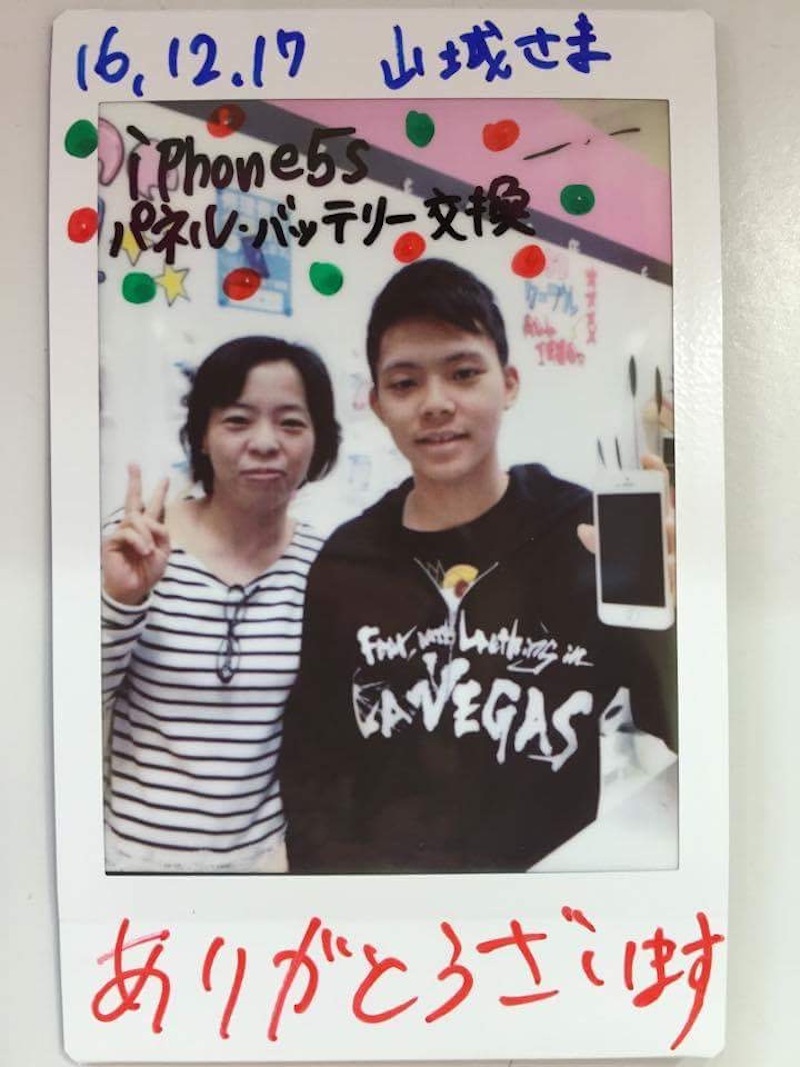 16.12.17 山城さま
iPhone5s
パネル・バッテリー交換
LAS VEGAS
ありがとうございます